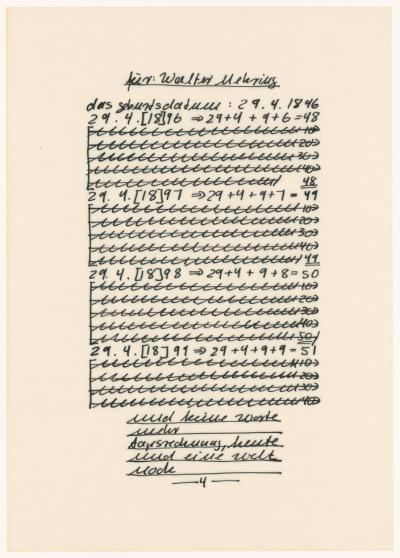 für: Walter Mehring
das geburtsdatum : 29. 4. 1896
29. 4. [18]96 ⇒ 29+4 + 9+6 = 48
10
20
30
40
48
29. 4. [18]97 ⇒ 29+4+9+7 = 49
10
20
30
40
49
29. 4. [18]98 ⇒ 29+4 + 9+8 = 50
10
20
30
40
50
29. 4. [18]99 ⇒ 29+4+9+9 = 51
10
20
30
40
und keine worte
mehr
tagesrechnung, heute
und eine welt
noch
—4—